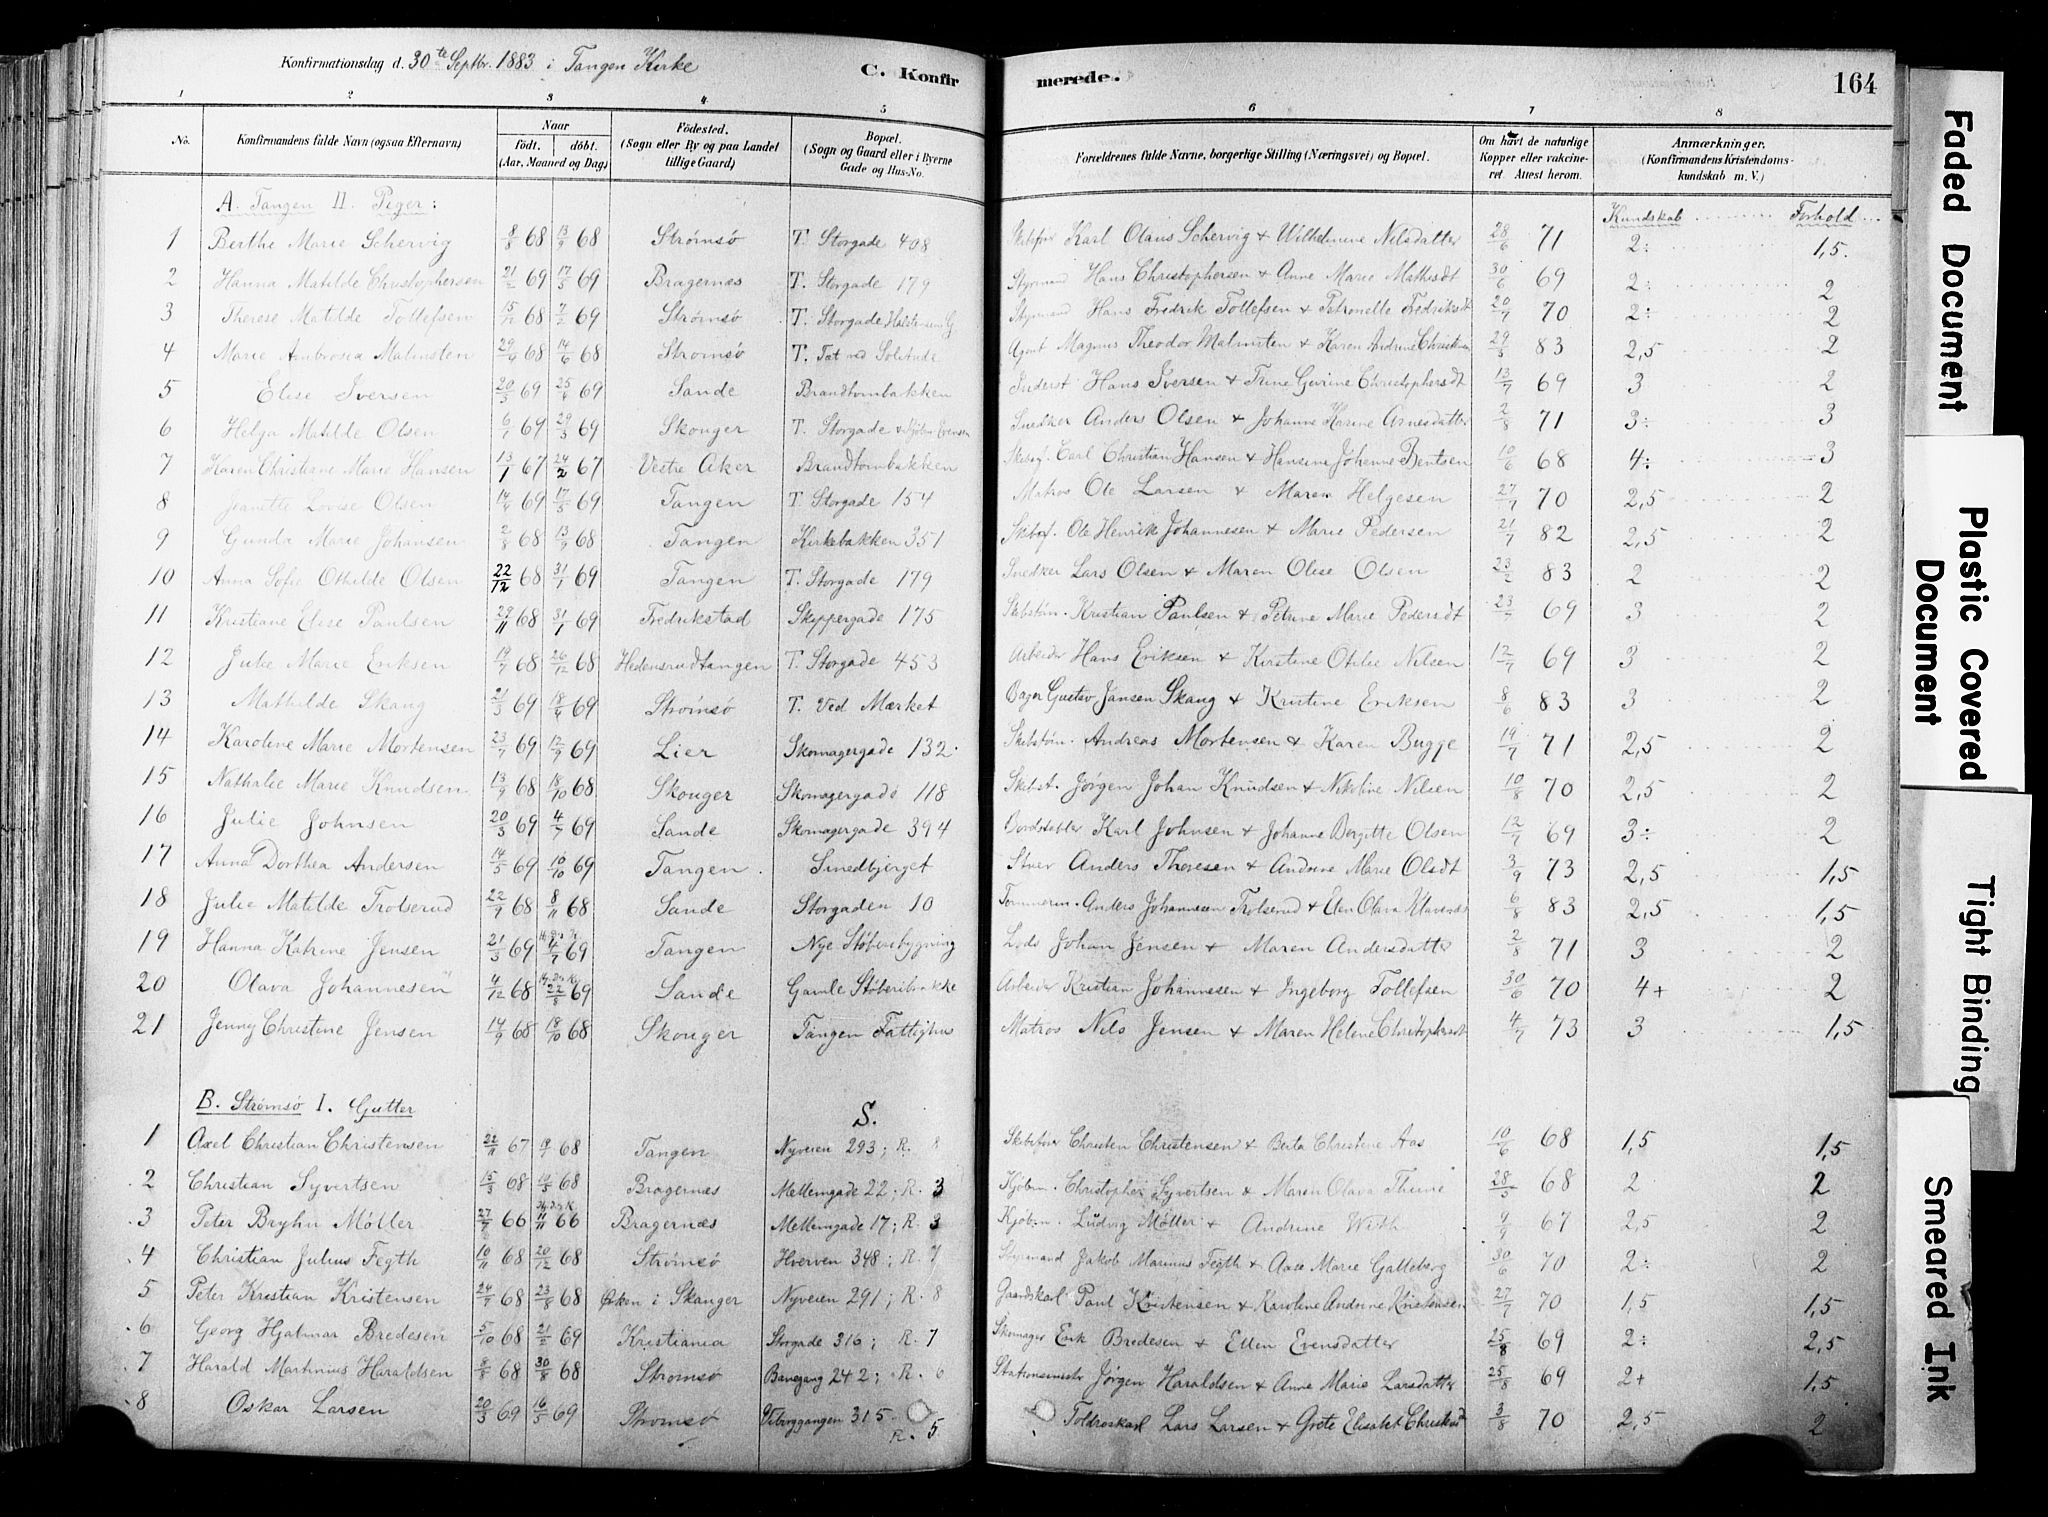 Konfirmationsdag d. 30te Septbr. 1883 i Tangen Kirke C. Konfirmerede. 164
1 2 3 4 5 6 7 8
No. Konfirmandens fulde Navn (ogsaa Efternavn) Naar født. døbt. (Aar, Maaned og Dag) Fødested. (Sogn eller By og paa Landet tillige Gaard) Bopæl. (Sogn og Gaard eller i Byerne Gade og Hus-No. Forældrenes fulde Navne, borgerlige Stilling (Næringsvei) og Bopæl. Om havt de naturlige Kopper eller vakcineret. Attest herom. Anmærkninger. (Konfirmandens Kristendomskundskab m. V.)
A. Tangen II. Piger: Kundskab Forhold
1 Berthe Marie Schervig 8/8 68 13/9 68 Strømsø T. Storgade 408 Skibsfører Karl Olaus Schervig & Wilhelmine Nilsdatter 28/6 71 2÷ 1,5.
2 Hanna Matilde Christophersen 21/2 69 17/5 69 Bragernæs T. Storgade 179 Styrmand Hans Christophersen & Anne Marie Mathisdt 30/6 69 2÷ 2
3 Therese Matilde Tollefsen 15/12 68 7/2 69 Strømsø T. Storgade Halstensens G Styrmand Hans Fredrik Tollefsen & Petronelle Fredriksdt 20/7 70 2÷ 2
4 Marie Ambrosia Malmsten 29/4 68 14/6 68 Strømsø T. Tæt ved Solitude Agent Magnus Theodor Malmsten & Karen Andrine Christensen 29/5 83 2,5 2
5 Elise Iversen 20/3 69 25/4 69 Sande Brandtombakken Inderst Hans Iversen & Trine Gurine Christophersdt 13/7 69 3 2
6 Helga Matilde Olsen 6/1 69 29/3 69 Skouger T. Storgade Snedker Anders Olsen & Johanne Karine Arnesdatter 2/8 71 3÷ 3
7 Karen Christiane Marie Hansen 13/1 67 24/2 67 Vestre Aker Brandtombakken Carl Christian Hansen & Hansine Johanne Bentsen 10/6 68 4÷ 3
8 Jeanette Lovise Olsen 14/4 69 17/5 69 Tangen T. Storgade 154 Matros Ole Larsen & Maren Helgesen 27/7 70 2,5 2
9 Gunda Marie Johansen 2/8 68 13/9 68 Tangen Kirkebakken 351 Skibsf. Ole Henrik Johannesen & Marie Pedersen 21/7 82 2,5 2
10 Anna Sofie Othilde Olsen 22/12 68 31/1 69 Tangen T. Storgade 179 Snedker Lars Olsen & Maren Olise Olsen 23/2 83 2 2
11 Kristiane Elise Paulsen 29/11 68 31/1 69 Fredrikstad Skippergade 175 Skibstøm. Kristian Paulsen & Petrine Marie Pedersdt 23/7 69 3 2
12 Julie Marie Eriksen 19/7 68 26/12 68 Hedensrudtangen T. Storgade 453 Arbeider Hans Eriksen & Kirstine Otilie Nilsen 12/7 69 3 2
13 Mathilde Skaug 21/3 69 18/4 69 Strømsø T. Ved Mærket Bager Gustav Jansen Skaug & Kristine Eriksen 8/6 83 3 2
14 Karoline Marie Mortensen 23/7 69 12/9 69 Lier Skomagergade 132. Skibstøm. Andreas Mortensen & Karen Bugge 19/7 71 2,5 2
15 Nathalie Marie Knudsen 13/9 68 18/10 68 Skouger Skomagergade 118 Skibst. Jørgen Johan Knudsen & Nikoline Nilsen 10/8 70 2,5 2
16 Julie Johnsen 20/3 69 4/7 69 Sande Skomagergade 394 Bordstabler Karl Johnsen & Johanne Bergitte Olsen 12/7 69 3÷ 2
17 Anna Dorthea Andersen 14/5 69 10/10 69 Tangen Smedbjerget Stuer Anders Thoresen & Andrine Marie Olsdt 3/9 73 2,5 1,5
18 Julie Matilde Trolserud 22/9 68 8/11 68 Sande Storgaden 10 Tømmerm. Anders Johannesen Trolserud & Elen Olava Klavenæs 6/8 83 2,5 1,5
19 Hanna Katrine Jensen 21/3 69 4/7 69 Tangen Nye Støberibygning Lods Johan Jensen & Maren Andersdatter 2/8 71 3 2
20 Olava Johannesen 4/12 68 22/8 69 Sande Gamle Støberibrakke Arbeider Kristian Johannesen & Ingeborg Tollefsen 30/6 70 4+ 2
21 Jenny Christine Jensen 14/9 68 18/10 68 Skouger Tangen Fattighus Matros Nils Jensen & Maren Helene Christophersdt 4/7 73 3 1,5
B. Strømsø I. Gutter S.
1 Axel Christian Christensen 22/11 67 68 Tangen Nyveien 293; R. 8 Skibsfører Christen Christensen & Berta Christine Aas 10/6 68 1,5 1,5
2 Christian Syvertsen 15/3 68 68 Bragernæs Mellemgade 22; R. 3 Kjøbm. Christopher Syvertsen & Maren Olava Thune 28/5 68 2 2
3 Peter Bryhn Møller 27/7 66 11/11 66 Bragernæs Mellemgade 17; R. 3 Kjøbm. Ludvig Møller & Andrine With 9/9 67 2,5 2
4 Christian Julius Fegth 10/11 68 20/12 68 Strømsø Hverven 348; R. 7 Styrmand Jakob Marinus Fegth & Aase Marie Galteberg 30/6 70 2÷ 2
5 Peter Kristian Kristensen 24/7 68 23/8 68 Ørken i Skauger Nyveien 291; R. 8 Gaardskarl Paul Kristensen & Karoline Andrine Kristensen 27/7 70 1,5 1,5
6 Georg Hjalmar Bredesen 5/10 68 21/2 69 Kristiania Storgade 316; R. 7 Skomager Erik Bredesen & Ellen Evensdatter 25/8 69 2÷ 2,5
7 Harald Martinius Haraldsen 8/8 68 30/8 68 Strømsø Banegang 242; R. 6 Stationsmester Jørgen Haraldsen & Anne Marie Larsdatter 25/8 69 2+ 1,5
8 Oskar Larsen 20/3 69 16/5 69 Strømsø Viborggangen 315 R. 5 Toldroskarl Lars Larsen & Grete Elisabet Christensdt 3/8 70 2,5 2
Faded Document
Plastic Covered Document
Tight Binding
Smeared Ink